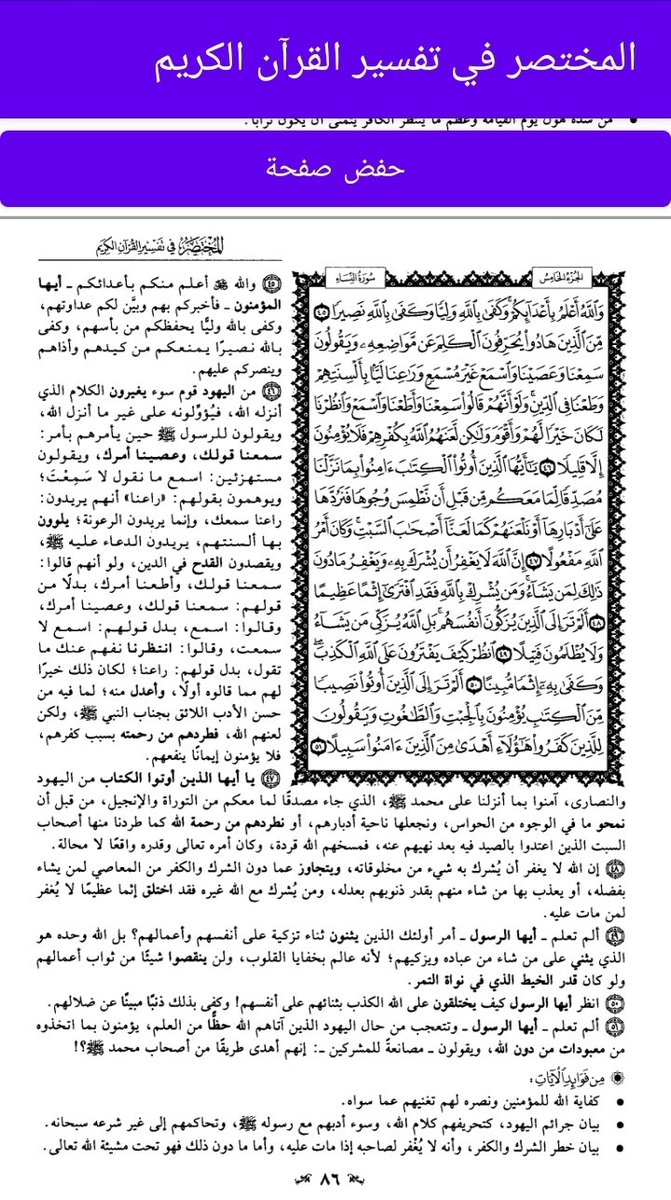 المختصر في تفسير القرآن الكريم
من شدة هول يوم القيامة وعظم ما ينتظر الكافر يتمنى أن يكون ترابًا.
حفض صفحة
المختصر في تفسير القرآن الكريم
الجزء الخامس
سورة النساء
وَٱللَّهُ أَعْلَمُ بِأَعْدَآئِكُمْ وَكَفَىٰ بِٱللَّهِ وَلِيًّا وَكَفَىٰ بِٱللَّهِ نَصِيرًا ٤٥
مِّنَ ٱلَّذِينَ هَادُوا۟ يُحَرِّفُونَ ٱلْكَلِمَ عَن مَّوَاضِعِهِۦ وَيَقُولُونَ
سَمِعْنَا وَعَصَيْنَا وَٱسْمَعْ غَيْرَ مُسْمَعٍ وَرَٰعِنَا لَيًّۢا بِأَلْسِنَتِهِمْ
وَطَعْنًا فِى ٱلدِّينِ وَلَوْ أَنَّهُمْ قَالُوا۟ سَمِعْنَا وَأَطَعْنَا وَٱسْمَعْ وَٱنظُرْنَا
لَكَانَ خَيْرًا لَّهُمْ وَأَقْوَمَ وَلَٰكِن لَّعَنَهُمُ ٱللَّهُ بِكُفْرِهِمْ فَلَا يُؤْمِنُونَ
إِلَّا قَلِيلًا ٤٦ يَٰٓأَيُّهَا ٱلَّذِينَ أُوتُوا۟ ٱلْكِتَٰبَ ءَامِنُوا۟ بِمَا نَزَّلْنَا
مُصَدِّقًا لِّمَا مَعَكُم مِّن قَبْلِ أَن نَّطْمِسَ وُجُوهًا فَنَرُدَّهَا
عَلَىٰٓ أَدْبَارِهَآ أَوْ نَلْعَنَهُمْ كَمَا لَعَنَّآ أَصْحَٰبَ ٱلسَّبْتِ وَكَانَ أَمْرُ
ٱللَّهِ مَفْعُولًا ٤٧ إِنَّ ٱللَّهَ لَا يَغْفِرُ أَن يُشْرَكَ بِهِۦ وَيَغْفِرُ مَا دُونَ
ذَٰلِكَ لِمَن يَشَآءُ وَمَن يُشْرِكْ بِٱللَّهِ فَقَدِ ٱفْتَرَىٰٓ إِثْمًا عَظِيمًا
٤٨ أَلَمْ تَرَ إِلَى ٱلَّذِينَ يُزَكُّونَ أَنفُسَهُم بَلِ ٱللَّهُ يُزَكِّى مَن يَشَآءُ
وَلَا يُظْلَمُونَ فَتِيلًا ٤٩ ٱنظُرْ كَيْفَ يَفْتَرُونَ عَلَى ٱللَّهِ ٱلْكَذِبَ
وَكَفَىٰ بِهِۦٓ إِثْمًا مُّبِينًا ٥٠ أَلَمْ تَرَ إِلَى ٱلَّذِينَ أُوتُوا۟ نَصِيبًا
مِّنَ ٱلْكِتَٰبِ يُؤْمِنُونَ بِٱلْجِبْتِ وَٱلطَّٰغُوتِ وَيَقُولُونَ
لِلَّذِينَ كَفَرُوا۟ هَٰٓؤُلَآءِ أَهْدَىٰ مِنَ ٱلَّذِينَ ءَامَنُوا۟ سَبِيلًا ٥١
٤٥ والله ﷻ أعلم منكم بأعدائكم ـ أيها
المؤمنون ـ فأخبركم بهم وبيَّن لكم عداوتهم،
وكفى بالله وليًّا يحفظكم من بأسهم، وكفى
بالله نصيرًا يمنعكم من كيدهم وأذاهم
وينصركم عليهم.
٤٦ من اليهود قوم سوء يغيرون الكلام الذي
أنزله الله، فيُؤوِّلونه على غير ما أنزل الله،
ويقولون للرسول ﷺ حين يأمرهم بأمر:
سمعنا قولك، وعصينا أمرك، ويقولون
مستهزئين: اسمع ما نقول لا سَمِعْتَ؛
ويوهمون بقولهم: «راعنا» أنهم يريدون:
راعنا سمعك، وإنما يريدون الرعونة؛ يلوون
بها ألسنتهم، يريدون الدعاء عليه ﷺ،
ويقصدون القدح في الدين، ولو أنهم قالوا:
سمعنا قولك، وأطعنا أمرك، بدلًا من
قولهم: سمعنا قولك، وعصينا أمرك،
وقالوا: اسمع، بدل قولهم: اسمع لا
سمعت، وقالوا: انتظرنا نفهم عنك ما
تقول، بدل قولهم: راعنا؛ لكان ذلك خيرًا
لهم مما قالوه أولًا، وأعدل منه؛ لما فيه من
حسن الأدب اللائق بجناب النبي ﷺ، ولكن
لعنهم الله، فطردهم من رحمته بسبب كفرهم،
فلا يؤمنون إيمانًا ينفعهم.
٤٧ يا أيها الذين أوتوا الكتاب من اليهود
والنصارى، آمنوا بما أنزلنا على محمد ﷺ، الذي جاء مصدقًا لما معكم من التوراة والإنجيل، من قبل أن
نمحو ما في الوجوه من الحواس، ونجعلها ناحية أدبارهم، أو نطردهم من رحمة الله كما طردنا منها أصحاب
السبت الذين اعتدوا بالصيد فيه بعد نهيهم عنه، فمسخهم الله قردة، وكان أمره تعالى وقدره واقعًا لا محالة.
٤٨ إن الله لا يغفر أن يُشرك به شيء من مخلوقاته، ويتجاوز عما دون الشرك والكفر من المعاصي لمن يشاء
بفضله، أو يعذب بها من شاء منهم بقدر ذنوبهم بعدله، ومن يُشرك مع الله غيره فقد اختلق إثما عظيمًا لا يُغفر
لمن مات عليه.
٤٩ ألم تعلم ـ أيها الرسول ـ أمر أولئك الذين يثنون ثناء تزكية على أنفسهم وأعمالهم؟ بل الله وحده هو
الذي يثني على من شاء من عباده ويزكيهم؛ لأنه عالم بخفايا القلوب، ولن ينقصوا شيئًا من ثواب أعمالهم
ولو كان قدر الخيط الذي في نواة التمر.
٥٠ انظر أيها الرسول كيف يختلقون على الله الكذب بثنائهم على أنفسهم! وكفى بذلك ذنبًا مبينًا عن ضلالهم.
٥١ ألم تعلم ـ أيها الرسول ـ وتتعجب من حال اليهود الذين آتاهم الله حظًّا من العلم، يؤمنون بما اتخذوه
من معبودات من دون الله، ويقولون ـ مصانعةً للمشركين ـ: إنهم أهدى طريقًا من أصحاب محمد ﷺ؟!
من فوائد الآيات:
• كفاية الله للمؤمنين ونصره لهم تغنيهم عما سواه.
• بيان جرائم اليهود، كتحريفهم كلام الله، وسوء أدبهم مع رسوله ﷺ، وتحاكمهم إلى غير شرعه سبحانه.
• بيان خطر الشرك والكفر، وأنه لا يُغْفر لصاحبه إذا مات عليه، وأما ما دون ذلك فهو تحت مشيئة الله تعالى.
٨٦